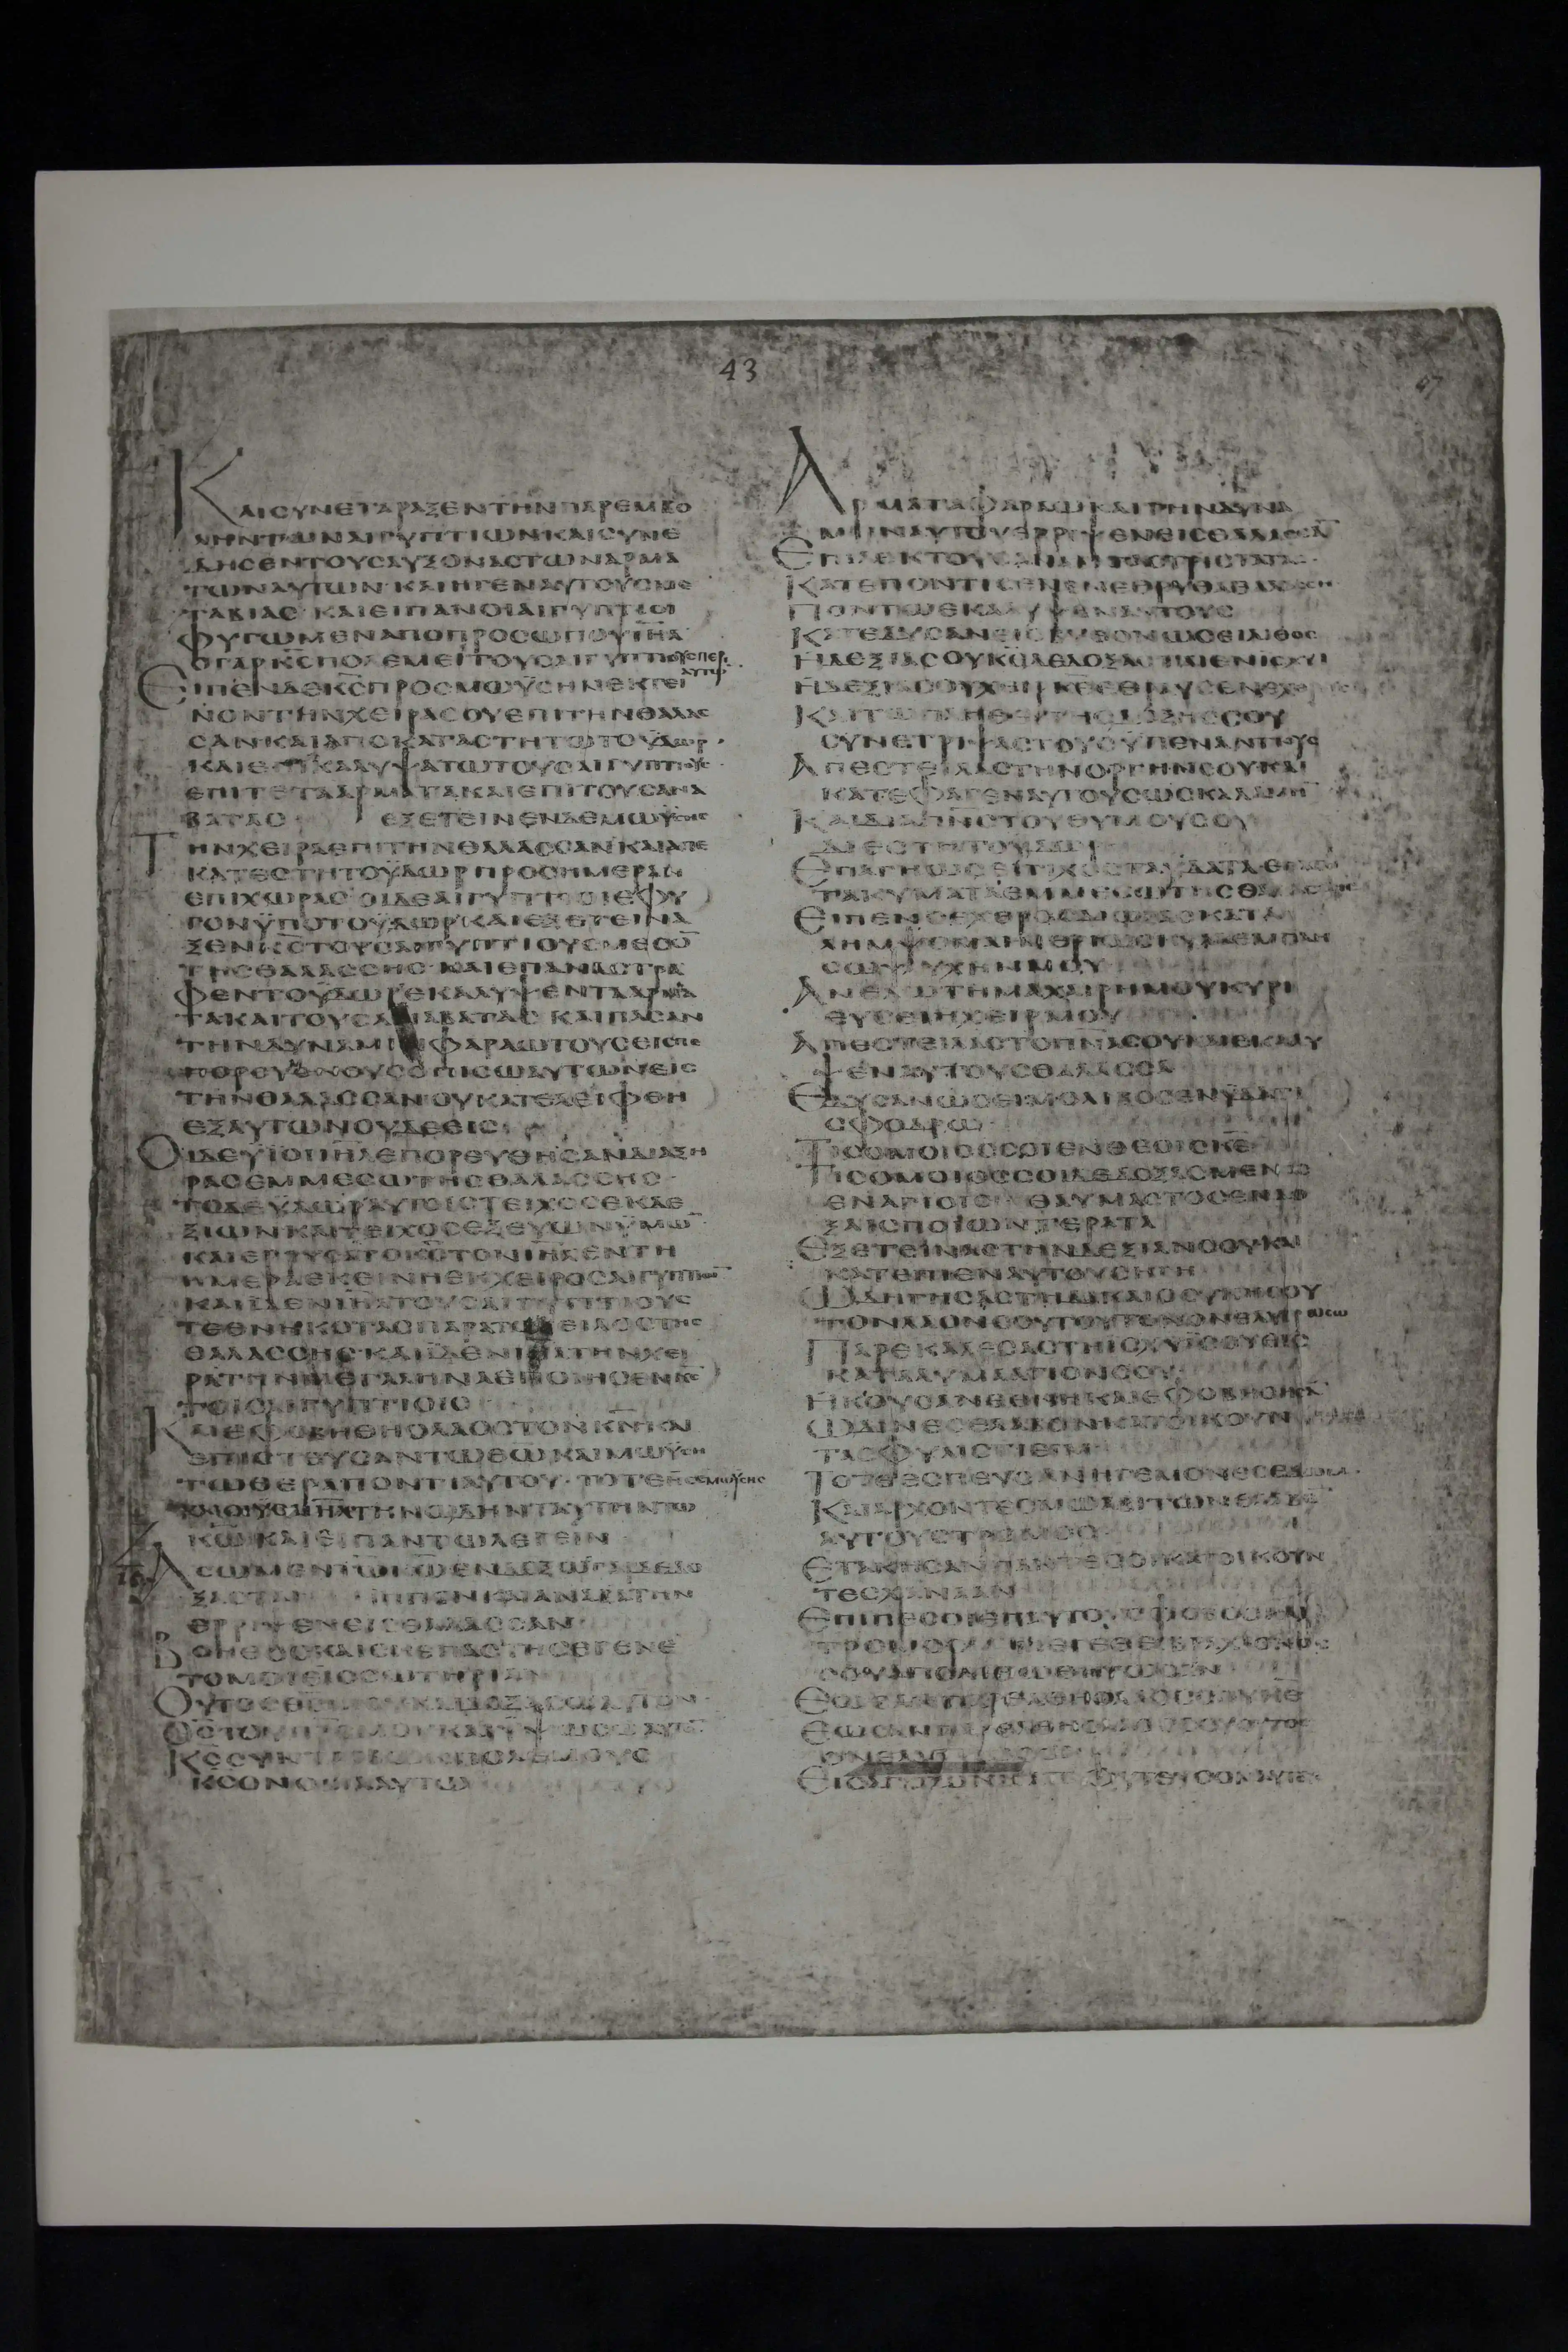 43
47
ΚΑΙCΥΝΕΤΑΡΑΞΕΝΤΗΝΠΑΡΕΜΒΟ
ΛΗΝΤΩΝΑΙΓΥΠΤΙΩΝΚΑΙCΥΝΕ
ΔΗCΕΝΤΟΥCΑΥΞΟΝΑCΤΩΝΑΡΜΑ
ΤΩΝΑΥΤΩΝ·ΚΑΙΗΓΕΝΑΥΤΟΥCΜΕ
ΤΑΒΙΑC·ΚΑΙΕΙΠΑΝΟΙΑΙΓΥΠΤΙΟΙ
ΦΥΓΩΜΕΝΑΠΟΠΡΟCΩΠΟΥΙΗΛ
ΟΓΑΡΚCΠΟΛΕΜΕΙΤΟΥCΑΙΓΥΠΤΙΟΥCΠΕΡΙ
ΑΥΤΩ
ΕΙΠΕΝΔΕΚCΠΡΟCΜΩΫCΗΝΕΚΤΕΙ
ΝΟΝΤΗΝΧΕΙΡΑCΟΥΕΠΙΤΗΝΘΑΛΑC
CΑΝΚΑΙΑΠΟΚΑΤΑCΤΗΤΩΤΟΫΔΩΡ·
ΚΑΙΕΠΙΚΑΛΥΨΑΤΩΤΟΥCΑΙΓΥΠΤΙΟΥC
ΕΠΙΤΕΤΑΑΡΜΑΤΑΚΑΙΕΠΙΤΟΥCΑΝΑ
ΒΑΤΑC ΕΞΕΤΕΙΝΕΝΔΕΜΩΫCΗC
ΤΗΝΧΕΙΡΑΕΠΙΤΗΝΘΑΛΑCCΑΝΚΑΙΑΠΕ
ΚΑΤΕCΤΗΤΟΫΔΩΡΠΡΟCΗΜΕΡΑΝ
ΕΠΙΧΩΡΑC·ΟΙΔΕΑΙΓΥΠΤΙΟΙΕΦΥ
ΓΟΝΫΠΟΤΟΫΔΩΡΚΑΙΕΞΕΤΕΙΝΑ
ΞΕΝΚCΤΟΥCΑΙΓΥΠΤΙΟΥCΜΕCΟ
ΤΗCΘΑΛΑCCΗC·ΚΑΙΕΠΑΝΑCΤΡΑ
ΦΕΝΤΟΫΔΩΡΕΚΑΛΥΨΕΝΤΑΑΡΜΑ
ΤΑΚΑΙΤΟΥCΑΝΑΒΑΤΑC ΚΑΙΠΑCΑΝ
ΤΗΝΔΥΝΑΜΙΝΦΑΡΑΩΤΟΥCΕΙCΠΕ
ΠΟΡΕΥΟΜΕΝΟΥCΟΠΙCΩΑΥΤΩΝΕΙC
ΤΗΝΘΑΛΑCCΑΝ·ΟΥΚΑΤΕΛΕΙΦΘΗ
ΕΞΑΥΤΩΝΟΥΔΕΕΙC
ΟΙΔΕΫΙΟΙΙΗΛΕΠΟΡΕΥΘΗCΑΝΔΙΑΞΗ
ΡΑCΕΜΜΕCΩΤΗCΘΑΛΑCCΗC·
ΤΟΔΕΫΔΩΡΑΥΤΟΙCΤΕΙΧΟCΕΚΔΕ
ΞΙΩΝΚΑΙΤΕΙΧΟCΕΞΕΥΩΝΥΜΩ
ΚΑΙΕΡΡΥCΑΤΟΚCΤΟΝΙΗΛΕΝΤΗ
ΗΜΕΡΑΕΚΕΙΝΗΕΚΧΕΙΡΟCΑΙΓΥΠΤΙΩ
ΚΑΙΙΔΕΝΙΗΛΤΟΥCΑΙΓΥΠΤΙΟΥC
ΤΕΘΝΗΚΟΤΑCΠΑΡΑΤΟΧΕΙΛΟCΤΗC
ΘΑΛΑCCΗC·ΚΑΙΙΔΕΝΙΗΛΤΗΝΧΕΙ
ΡΑΤΗΝΜΕΓΑΛΗΝΑΕΠΟΙΗCΕΝΚC
ΤΟΙCΑΙΓΥΠΤΙΟΙC
ΚΑΙΕΦΟΒΗΘΗΟΛΑΟCΤΟΝΚΝΚΑΙ
ΕΠΙCΤΕΥCΑΝΤΩΘΩΚΑΙΜΩΫCΗ
ΤΩΘΕΡΑΠΟΝΤΙΑΥΤΟΥ·ΤΟΤΕΗCΕΜΩΫCΗC
ΚΑΙΟΙΥΙΟΙΙΗΛΤΗΝΩΔΗΝΤΑΥΤΗΝΤΩ
ΚΩΚΑΙΕΙΠΑΝΤΩΛΕΓΕΙΝ
ΑCΩΜΕΝΤΩΚΩΕΝΔΟΞΩCΓΑΡΔΕΔΟ
ΞΑCΤΑΙ ΙΠΠΟΝΚΑΙΑΝΑΒΑΤΗΝ
ΕΡΡΙΨΕΝΕΙCΘΑΛΑCCΑΝ
ΒΟΗΘΟCΚΑΙCΚΕΠΑCΤΗCΕΓΕΝΕ
ΤΟΜΟΙΕΙCCΩΤΗΡΙΑΝ
ΟΥΤΟC
ΚC
ΚCΟΝΟΜΑΑΥΤΩ
ΑΡΜΑΤΑΦΑΡΑΩΚΑΙΤΗΝΔΥΝΑ
ΜΙΝΑΥΤΟΥΕΡΡΙΨΕΝΕΙCΘΑΛΑCCΑ
ΕΠΙΛΕΚΤΟΥCΑΝΑΒΑΤΑCΤΡΙCΤΑΤΑC
ΚΑΤΕΠΟΝΤΙCΕΝΕΝΕΡΥΘΡΑΘΑΛΑCCΗ
ΠΟΝΤΩΕΚΑΛΥΨΕΝΑΥΤΟΥC
ΚΑΤΕΔΥCΑΝΕΙCΒΥΘΟΝΩCΕΙΛΙΘΟC
ΗΔΕΞΙΑCΟΥΚΕΔΕΔΟΞΑCΤΑΙΕΝΙCΧΥΙ
ΗΔΕΞΙΑCΟΥΧΕΙΡΚΕΕΘΡΑΥCΕΝΕΧΘΡΟΥC
ΚΑΙΤΩΠΛΗΘΕΙΤΗCΔΟΞΗCCΟΥ
CΥΝΕΤΡΙΨΑCΤΟΥCΫΠΕΝΑΝΤΙΟΥC
ΑΠΕCΤΕΙΛΑCΤΗΝΟΡΓΗΝCΟΥΚΑΙ
ΚΑΤΕΦΑΓΕΝΑΥΤΟΥCΩCΚΑΛΑΜΗ
ΚΑΙΔΙΑΠΝCΤΟΥΘΥΜΟΥCΟΥ
ΔΙΕCΤΗΤΟΥΔΩΡ
ΕΠΑΓΗΩCΕΙΤΙΧΟCΤΑΥΔΑΤΑΕΠΑΓΗ
ΤΑΚΥΜΑΤΑΕΜΜΕCΩΤΗCΘΑΛΑCCΗC
ΕΙΠΕΝΟΕΧΘΡΟCΔΙΩΞΑCΚΑΤΑ
ΛΗΜΨΟΜΑΙΜΕΡΙΩCΚΥΛΑΕΜΠΛΗ
CΩΨΥΧΗΝΜΟΥ
ΑΝΕΛΩΤΗΜΑΧΑΙΡΗΜΟΥΚΥΡΙ
ΕΥCΕΙΗΧΕΙΡΜΟΥ
ΑΠΕCΤΕΙΛΑCΤΟΠΝΑCΟΥΚΑΙΕΚΑΛΥ
ΨΕΝΑΥΤΟΥCΘΑΛΑCCΑ
ΕΔΥCΑΝΩCΕΙΜΟΛΙΒΟCΕΝΫΔΑΤΙ
CΦΟΔΡΩ
ΤΙCΟΜΟΙΟCCΟΙΕΝΘΕΟΙCΚΕ
ΤΙCΟΜΟΙΟCCΟΙΔΕΔΟΞΑCΜΕΝΟ
ΕΝΑΓΙΟΙC ΘΑΥΜΑCΤΟCΕΝΔΟ
ΞΑΙCΠΟΙΩΝΤΕΡΑΤΑ
ΕΞΕΤΕΙΝΑCΤΗΝΔΕΞΙΑΝCΟΥΚΑΙ
ΚΑΤΕΠΙΕΝΑΥΤΟΥCΗΓΗ
ΩΔΗΓΗCΑCΤΗΔΙΚΑΙΟCΥΝΗCΟΥ
ΤΟΝΛΑΟΝCΟΥΤΟΥΤΟΝΟΝΕΛΥΤΡΩCΩ
ΠΑΡΕΚΑΛΕCΑCΤΗΙCΧΥΪCΟΥΕΙC
ΚΑΤΑΛΥΜΑΑΓΙΟΝCΟΥ
ΗΚΟΥCΑΝΕΘΝΗΚΑΙΕΦΟΒΗΘΗCΑ
ΩΔΙΝΕCΕΛΑΒΟΝΚΑΤΟΙΚΟΥΝ
ΤΑCΦΥΛΙCΤΙΕΙΜ
ΤΟΤΕΕCΠΕΥCΑΝΗΓΕΜΟΝΕCΕΔΩΜ·
ΚΑΙΑΡΧΟΝΤΕCΜΩΑΒΙΤΩΝΕΛΑΒΕ
ΑΥΤΟΥCΤΡΟΜΟC
ΕΤΑΚΗCΑΝΠΑΝΤΕCΟΙΚΑΤΟΙΚΟΥΝ
ΤΕCΧΑΝΑΑΝ
ΕΠΙΠΕCΟΙΕΠΑΥΤΟΥCΦΟΒΟCΚΑΙ